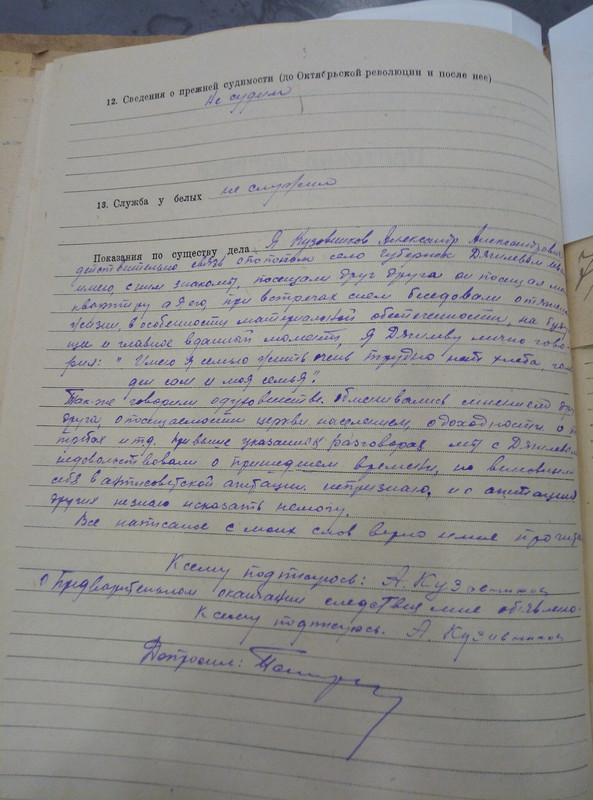 12. Сведения о прежней судимости (до Октябрьской революции и после нее)
не судим
13. Служба у белых не служил
Показания по существу дела Я Кузовников Александр Александрович
действительно связь с попом села
имею, с ним знаком, посещали друг друга он посещал мою
квартиру а я его, при встречах с ним беседовали о
жизни, в особенности материальной обеспеченности, на буду-
щи и главное в данный момент, я лично гово-
рил: "Имею я семью жить очень трудно нет хлеба,
сам и моя семья".
Так же говорили о духовенстве. Обменивались мнением друг
друга, о посещаемости церкви населением, о доходности о
и т.д. При выше указаных разговорах мы с
недовольствовали о прошедшем времени, но виновным
себя в антисоветской агитации непризнаю, и о агитации
других незнаю исказать немогу.
Все написаное с моих слов верно и мне
К сему подписуюсь: А. Кузовников
О Предварительном окончании следствия мне объявлено.
К сему подписуюсь. А Кузовников
Допросил: